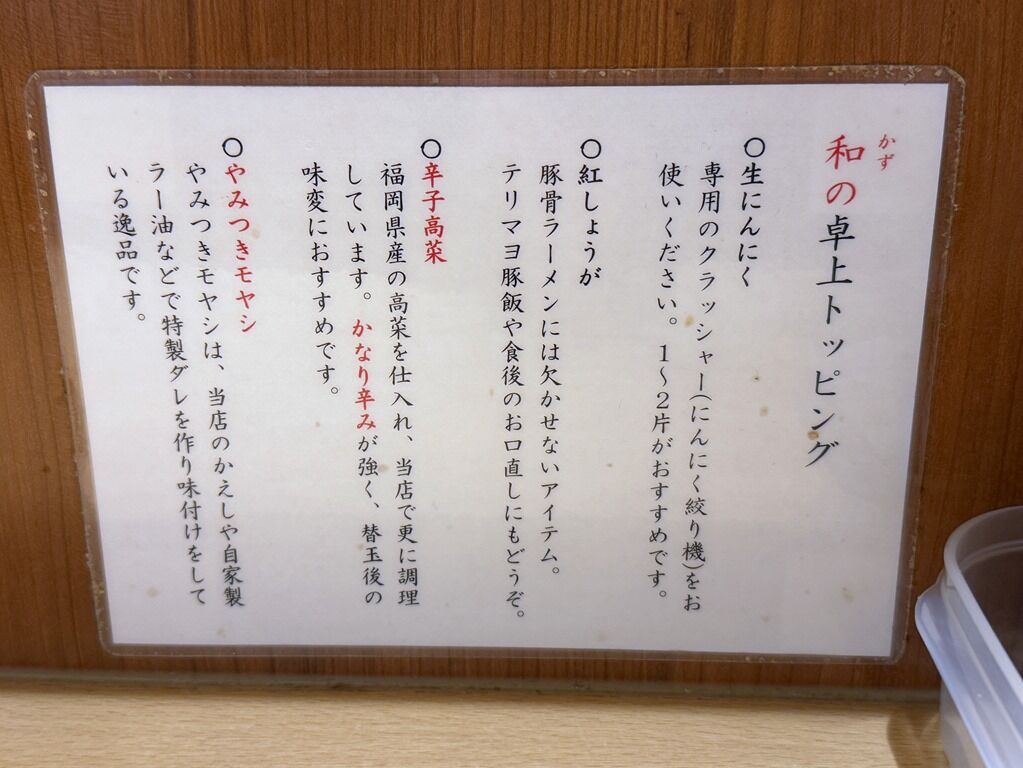 和の卓上トッピング
かず
〇生にんにく
専用のクラッシャー(にんにく絞り機)をお
使いください。1〜2片がおすすめです。
〇紅しょうが
豚骨ラーメンには欠かせないアイテム。
テリマヨ豚飯や食後のお口直しにもどうぞ。
〇辛子高菜
福岡県産の高菜を仕入れ、当店で更に調理
しています。かなり辛みが強く、替玉後の
味変におすすめです。
〇やみつきモヤシ
やみつきモヤシは、当店のかえしや自家製
ラー油などで特製ダレを作り味付けをして
いる逸品です。